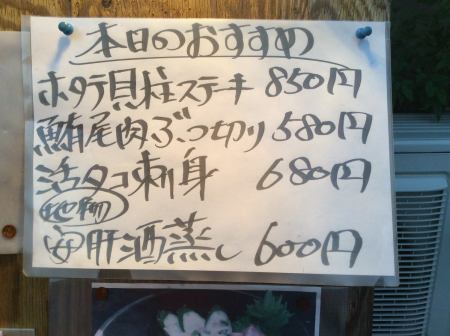 本日のおすすめ
ホタテ貝柱ステーキ 850円
鮪尾肉ぶつ切り 580円
活タコ刺身 680円
地物
安肝酒蒸し 600円